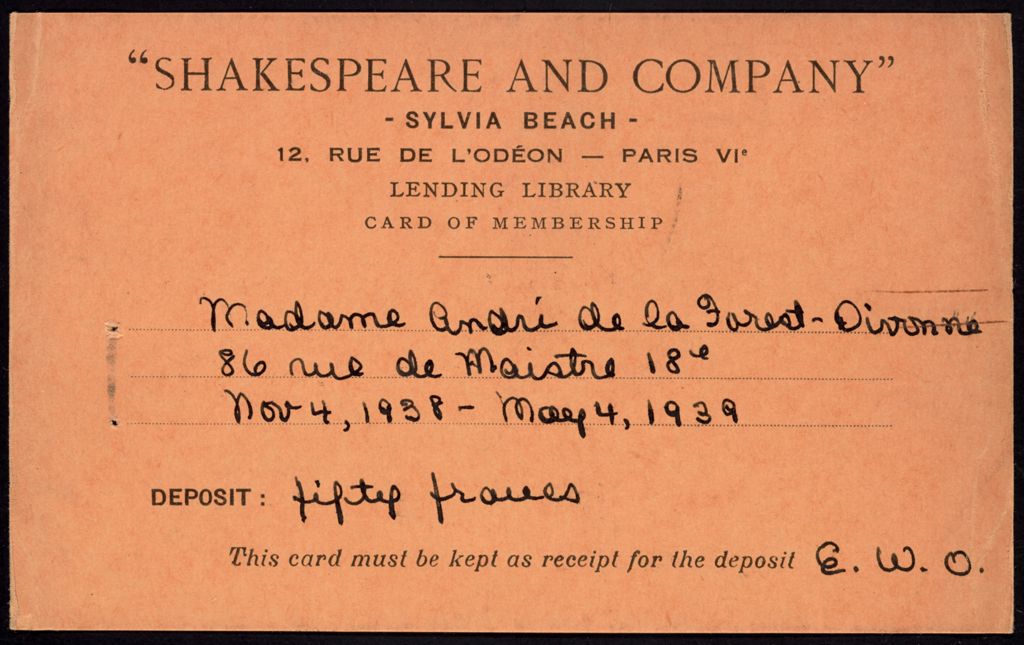 “SHAKESPEARE AND COMPANY”
- SYLVIA BEACH -
12, RUE DE L'ODÉON — PARIS VIe
LENDING LIBRARY
CARD OF MEMBERSHIP
Madame André de la Forest-Divonne
86 rue de Maistre 18e
Nov 4, 1938 - May 4, 1939
DEPOSIT: fifty francs
This card must be kept as receipt for the deposit E. W. O.